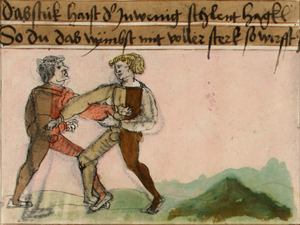 Das stuk haist d' Inwenig schlent hagk
So du das nymbst mit voller sterk so wirfst